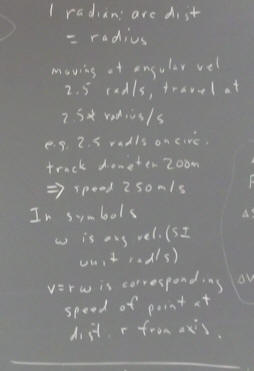 1 radian: arc dist
= radius
moving at angular vel
2.5 rad/s, travel at
2.5* radius/s
e.g. 2.5 rad/s on circ.
track diameter 200m
⇒ speed 250m/s
In symbols
ω is ang vel. (SI
unit rad/s)
v=rω is corresponding
speed of point at
dist. r from axis.